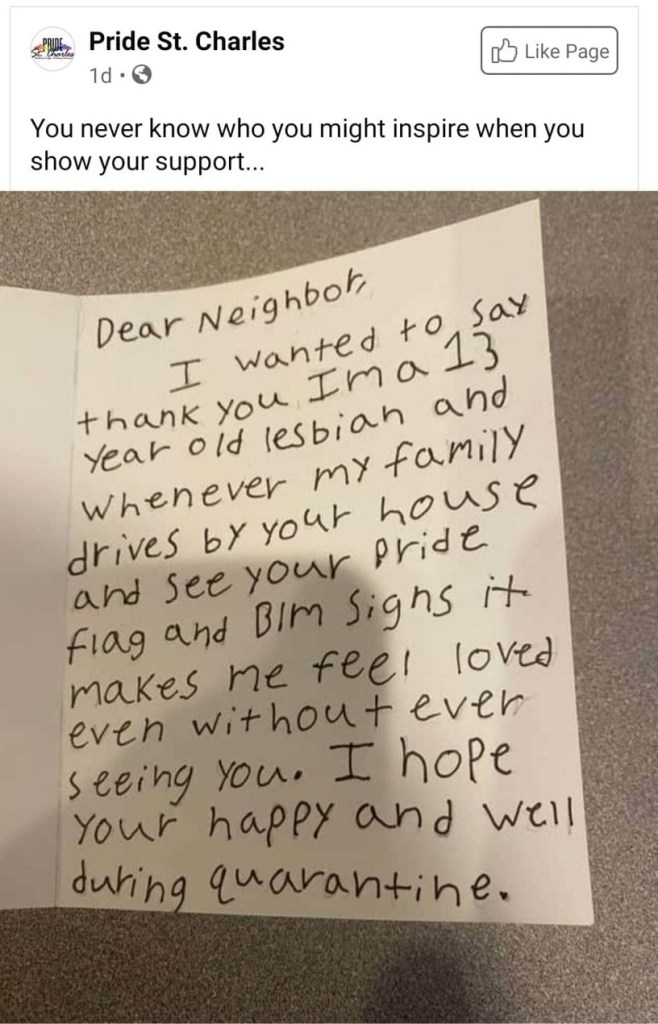 PRIDE
St. Charles
Pride St. Charles
1d
Like Page
You never know who you might inspire when you
show your support...
Dear Neighbor,
I wanted to say
thank you Im a 13
year old lesbian and
whenever my family
drives by your house
and see your pride
flag and Blm signs it
makes me feel loved
even without ever
seeing you. I hope
your happy and well
during quarantine.